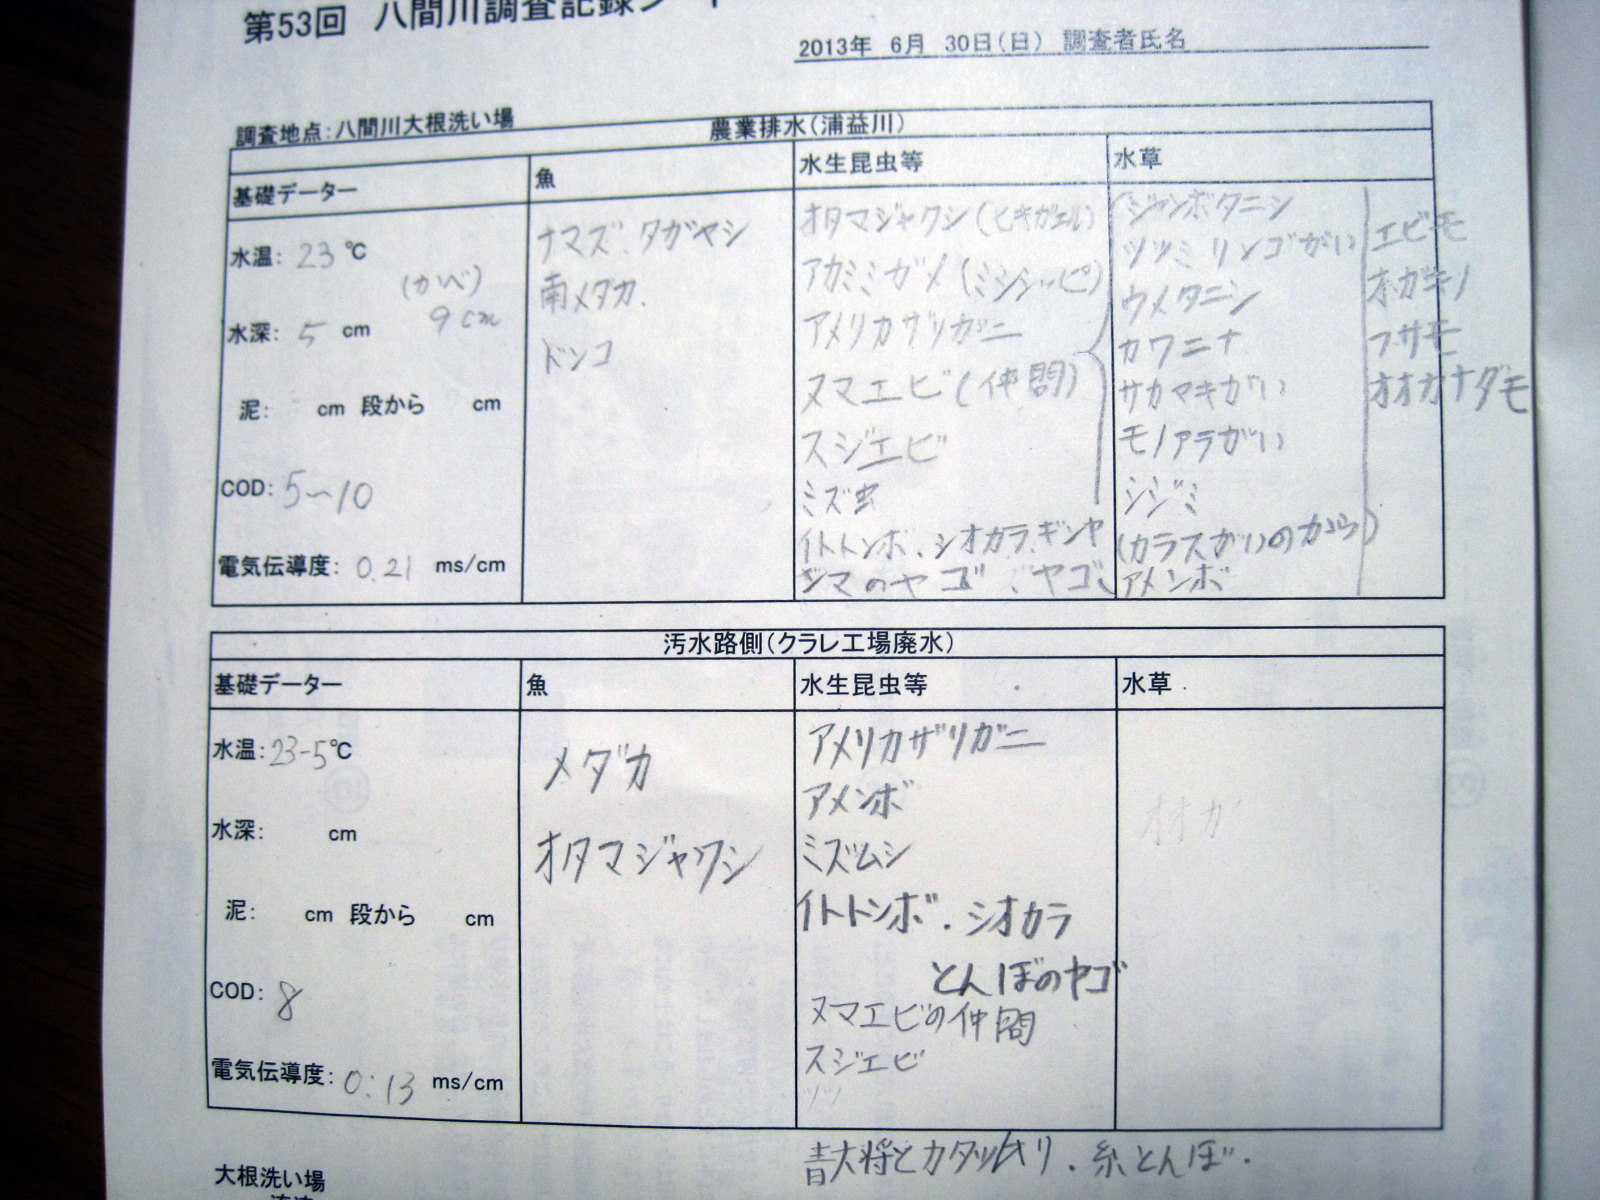 第53回 八間川調査記録シート
2013年 6月 30日(日) 調査者氏名
調査地点:八間川大根洗い場
農業排水(浦益川)
基礎データー 魚 水生昆虫等 水草
水温: 23 ℃
(かべ)
9cm
水深: 5 cm
泥: cm 段から cm
COD: 5〜10
電気伝導度: 0.21 ms/cm
ナマズ、タガヤシ
南メダカ.
ドンコ
オタマジャクシ(ヒキガエル)
アカミミガメ(ミシシッピ)
アメリカザリガニ
ヌマエビ(仲間)
スジエビ
ミズ虫
イトトンボ、シオカラ、ギンヤ
ンマのヤゴ ヤゴ
ジャンボタニシ
ツツミリンゴがい
ウメタニシ
カワニナ
サカマキがい
モノアラがい
シジミ
(カラスがいのから)
アメンボ
エビモ
オガキノ
フサモ
オオカナダモ
汚水路側(クラレ工場廃水)
基礎データー 魚 水生昆虫等 水草
水温:23-5℃
水深: cm
泥: cm 段から cm
COD: 8
電気伝導度: 0.13 ms/cm
メダカ
オタマジャクシ
アメリカザリガニ
アメンボ
ミズムシ
イトトンボ.シオカラ
とんぼのヤゴ
ヌマエビの仲間
スジエビ
ツツ
オオカ
青大将とカタツムリ.糸とんぼ.
大根洗い場